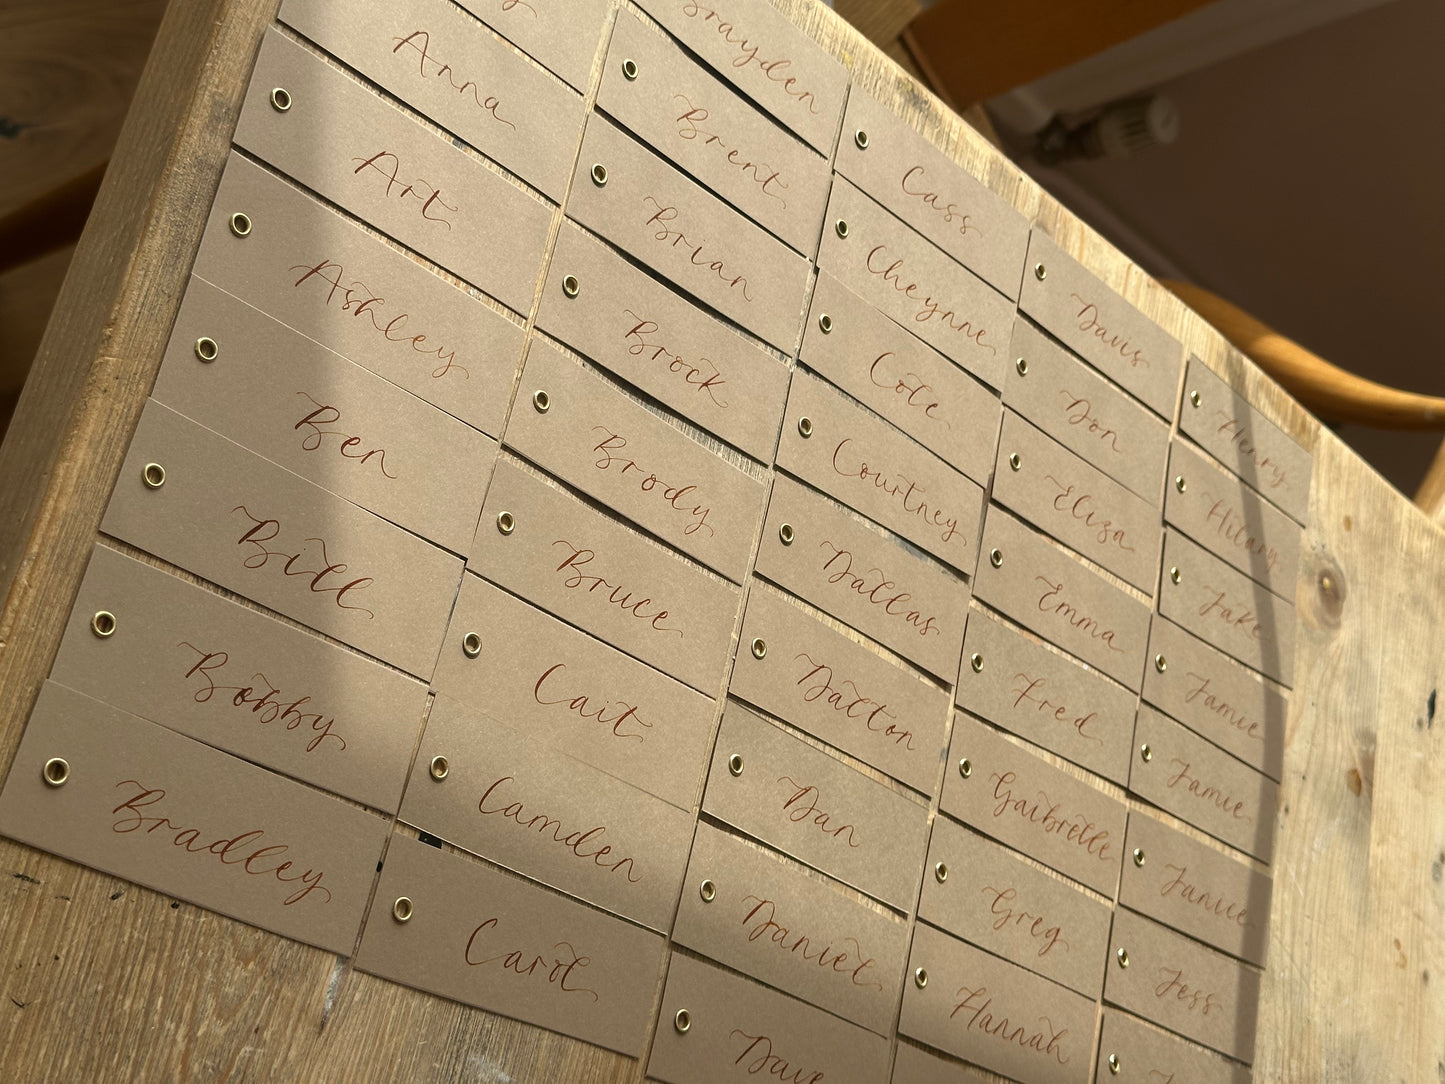 Anna
Art
Ashley
Ben
Bill
Bobby
Bradley
Brayden
Brent
Brian
Brock
Brody
Bruce
Cait
Camden
Carol
Cass
Cheynne
Cole
Courtney
Dallas
Dalton
Dan
Daniel
Dave
Davis
Don
Eliza
Emma
Fred
Gaibrelle
Greg
Hannah
Henry
Hilary
Jake
Jamie
Jamie
Janice
Jess